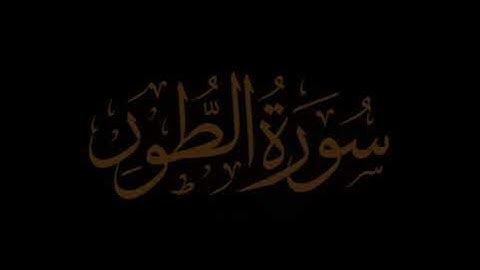 سُورَةُ الطُّورِ